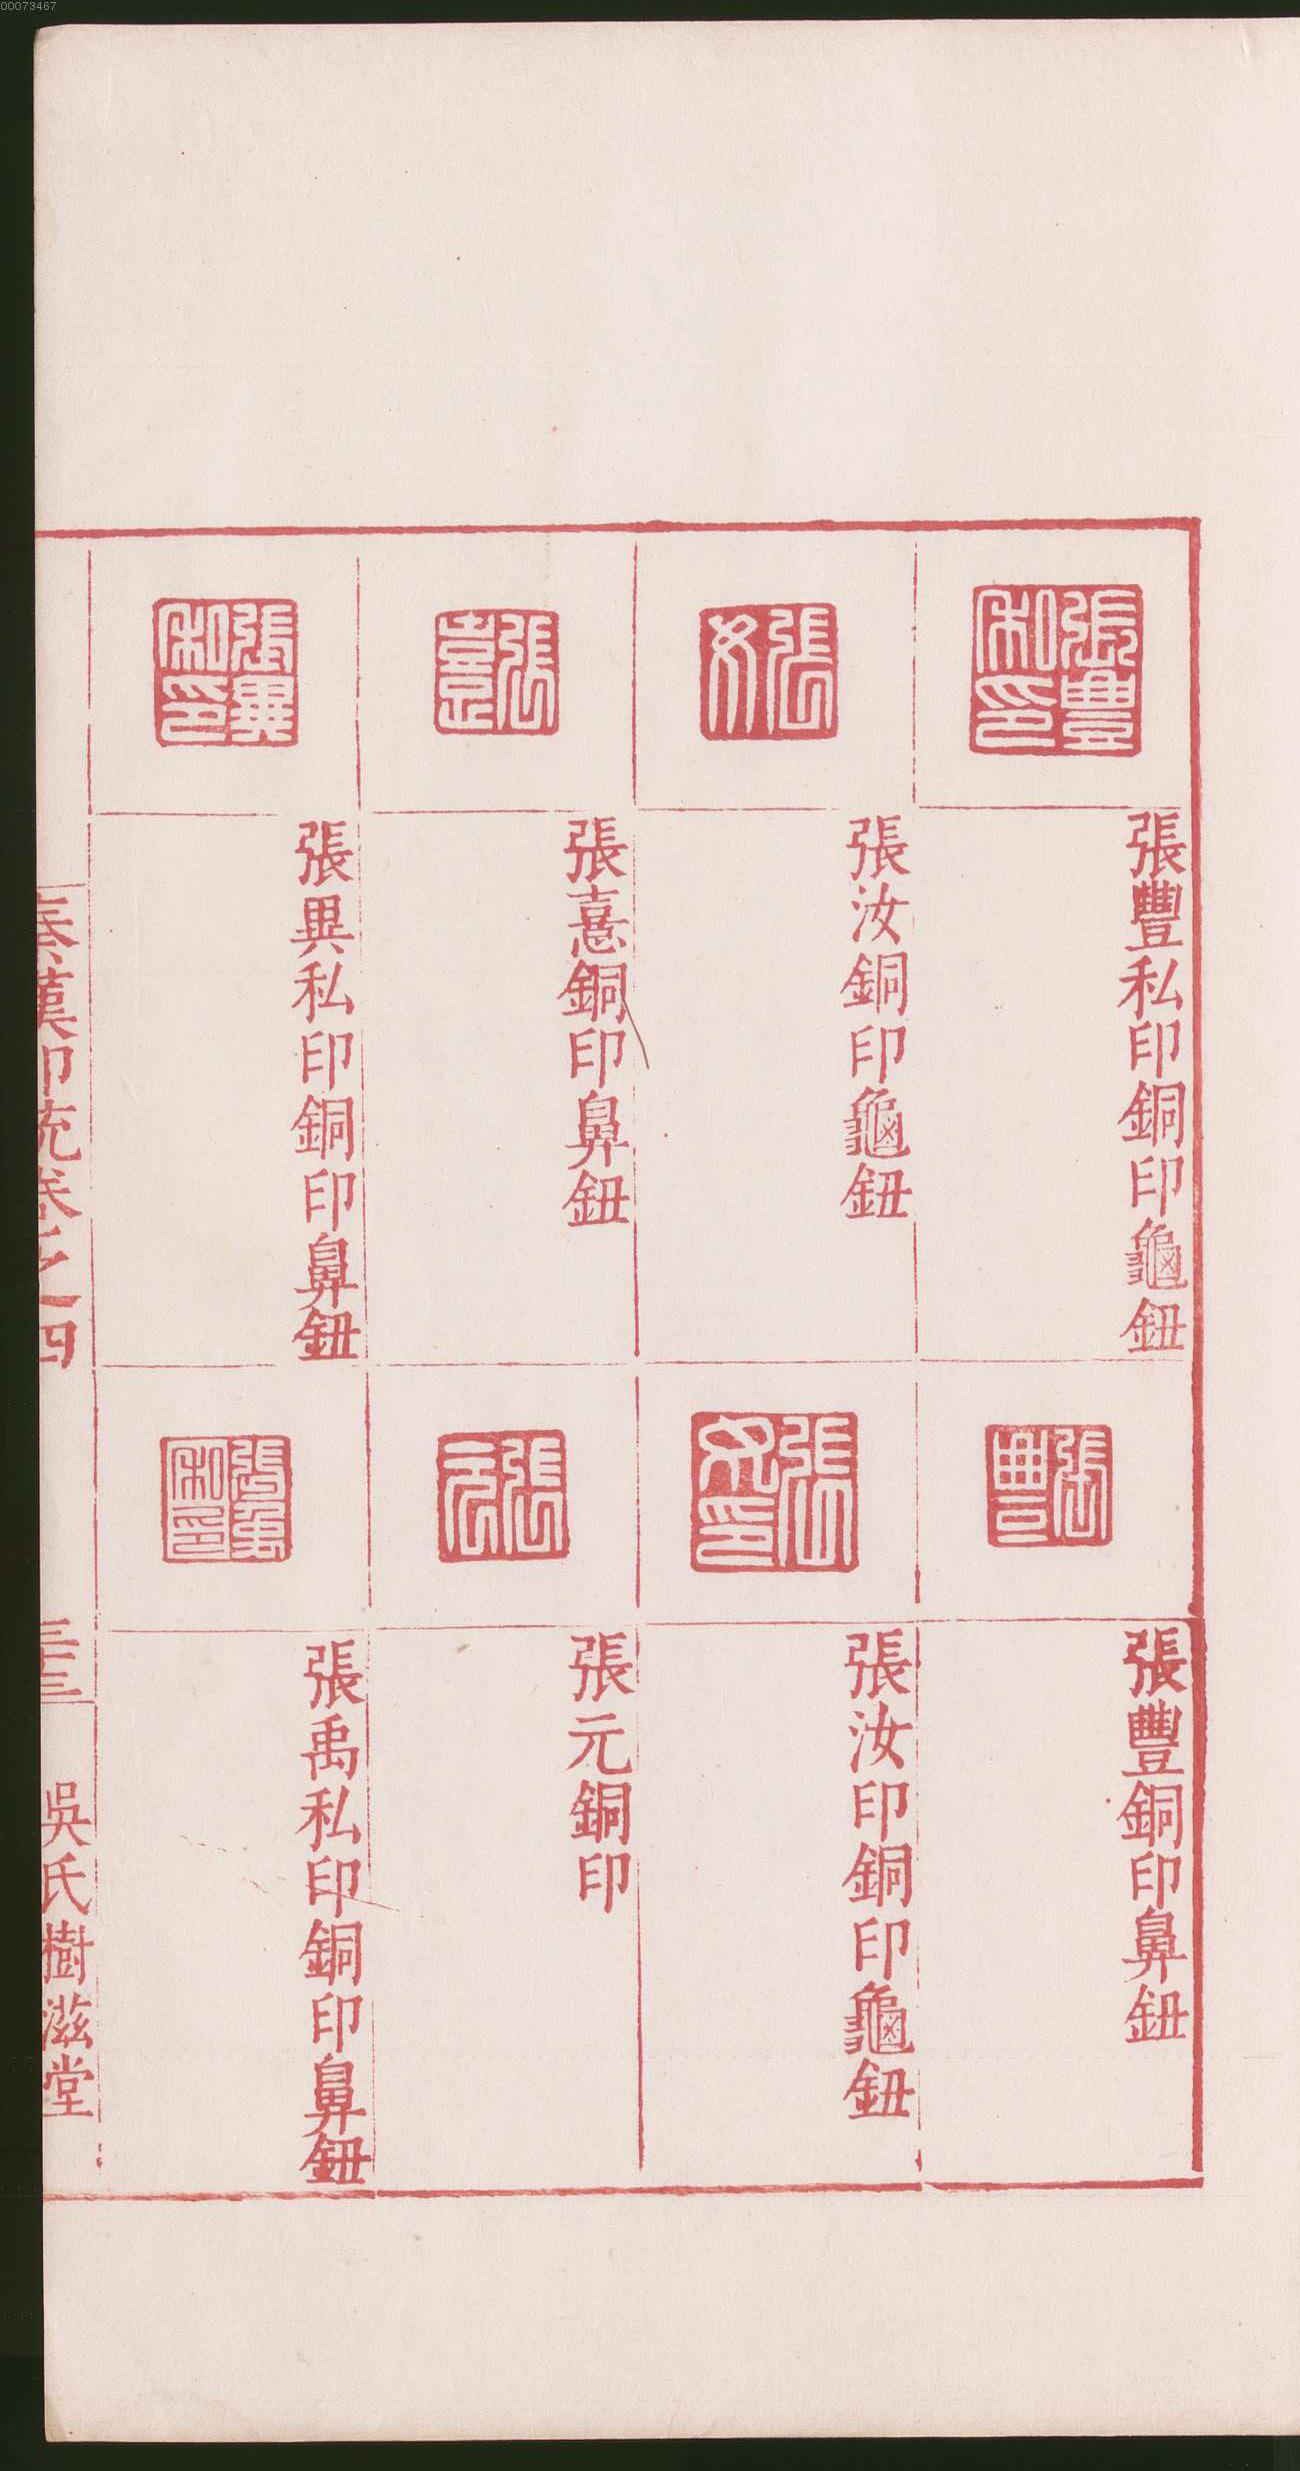 00073467
張豐私印
張豐私印銅印龜鈕
張豐
張豐銅印鼻鈕
張女
張汝銅印龜鈕
張女印
張汝印銅印龜鈕
張憙
張憙銅印鼻鈕
張元
張元銅印
張異私印
張異私印銅印鼻鈕
張禹私印
張禹私印銅印鼻鈕
秦漢印統卷之四
三十三
吳氏樹滋堂